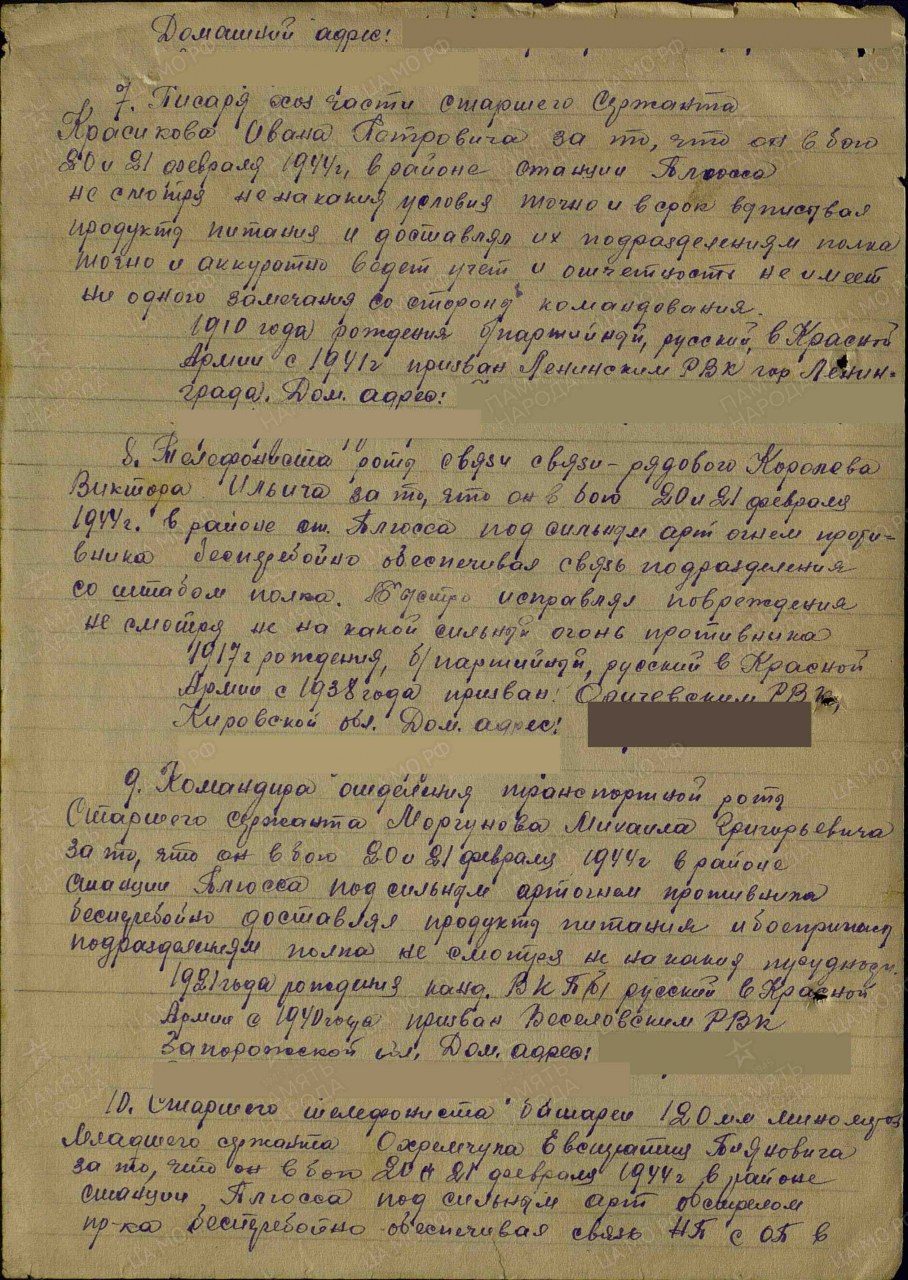 Домашний адрес:
7. Писаря хоз части старшего сержанта
Красикова Ивана Петровича за то, что он в бою
20 и 21 февраля 1944г, в районе станции Плюсса
не смотря не на какия условия точно и в срок
продукты питания и доставлял их подразделениям полка
точно и аккуратно ведет учет и отчетность не имеет
ни одного замечания со стороны командования.
1910 года рождения б/партийный, русский, в Красной
Армии с 1941г призван Ленинским РВК гор Ленин-
града. Дом. адрес:
8. Телефониста роты связи связи - рядового Королева
Виктора Ильича за то, что он в бою 20 и 21 февраля
1944г. в районе ст. Плюсса под сильным арт огнем проти-
вника бесперебойно обеспечивая связь подразделения
со штабом полка. Быстро исправлял повреждения
не смотря не на какой сильный огонь противника
1917г рождения, б/партийный, русский в Красной
Армии с 1938 года призван: Оричевским РВК,
Кировской обл. Дом. адрес:
9. Командира отделения транспортной роты
Старшего сержанта Моргунова Михаила Григорьевича
за то, что он в бою 20 и 21 февраля 1944г в районе
станции Плюсса под сильным артогнем противника
бесперебойно доставлял продукты питания и боеприпасы
подразделениям полка не смотря не на какия
1921 года рождения канд. ВКП(б) русский в Красной
Армии с 1940 года призван Веселовским РВК
Запорожской обл. Дом. адрес:
10. Старшего телефониста батареи 120 мм минометов
Младшего сержанта
за то, что он в бою 20 и 21 февраля 1944г в районе
станции Плюсса под сильным арт обстрелом
пр-ка бесперебойно обеспечивая связь НП с ОП в